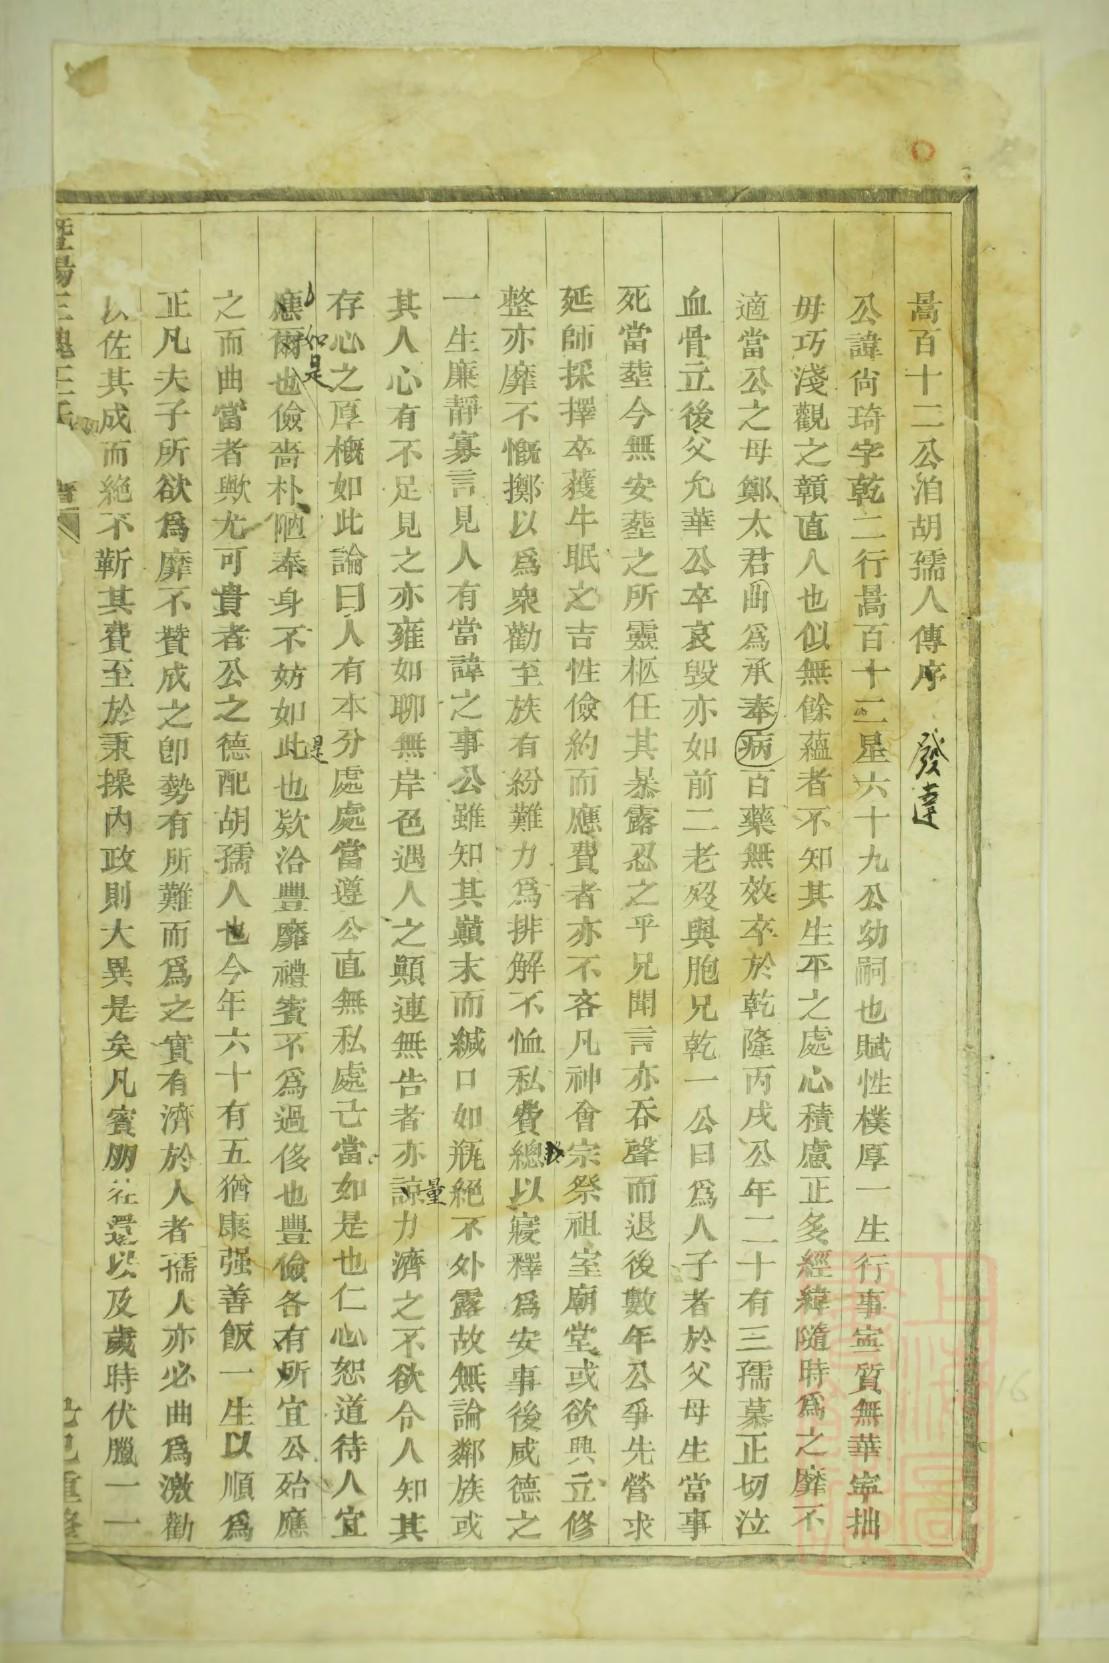 暠百十二公洎胡孺人傳序 發達
公諱尙琦字乾二行暠百十二星六十九公幼嗣也賦性樸厚一生行事寧質無華寧拙
毋巧淺觀之顛直人也似無餘蘊者不知其生平之處心積慮正多經緯隨時爲之靡不
適當公之母鄭太君曲爲承奉病百藥無效卒於乾隆丙戌公年二十有三孺慕正切泣
血骨立後父允華公卒哀毀亦如前二老歿與胞兄乾一公曰爲人子者於父母生當事
死當塟今無安塟之所靈柩任其暴露忍之乎兄聞言亦吞聲而退後數年公爭先營求
延師採擇卒獲牛眠之吉性儉約而應費者亦不吝凡神會宗祭祖室廟堂或欲興立修
整亦靡不慨擲以爲衆勸至族有紛難力爲排解不恤私費總以寢釋爲安事後咸德之
一生廉靜寡言見人有當諱之事公雖知其顚末而緘口如瓶絕不外露故無論鄰族或
其人心有不足見之亦雍如聊無岸色遇人之顚連無告者亦諒量力濟之不欲令人知其
存心之厚概如此論曰人有本分處處當遵公直無私處己當如是也仁心恕道待人宜
應爾也如是儉嗇朴陋奉身不妨如此是也欵洽豐靡禮賓不爲過侈也豐儉各有所宜公殆應
之而曲當者歟尤可貴者公之德配胡孺人也今年六十有五猶康强善飯一生以順爲
正凡夫子所欲爲靡不贊成之卽勢有所難而爲之實有濟於人者孺人亦必曲爲激勸
以佐其成而絕不靳其費至於秉操內政則大異是矣凡賓朋往還以及歲時伏臘一一